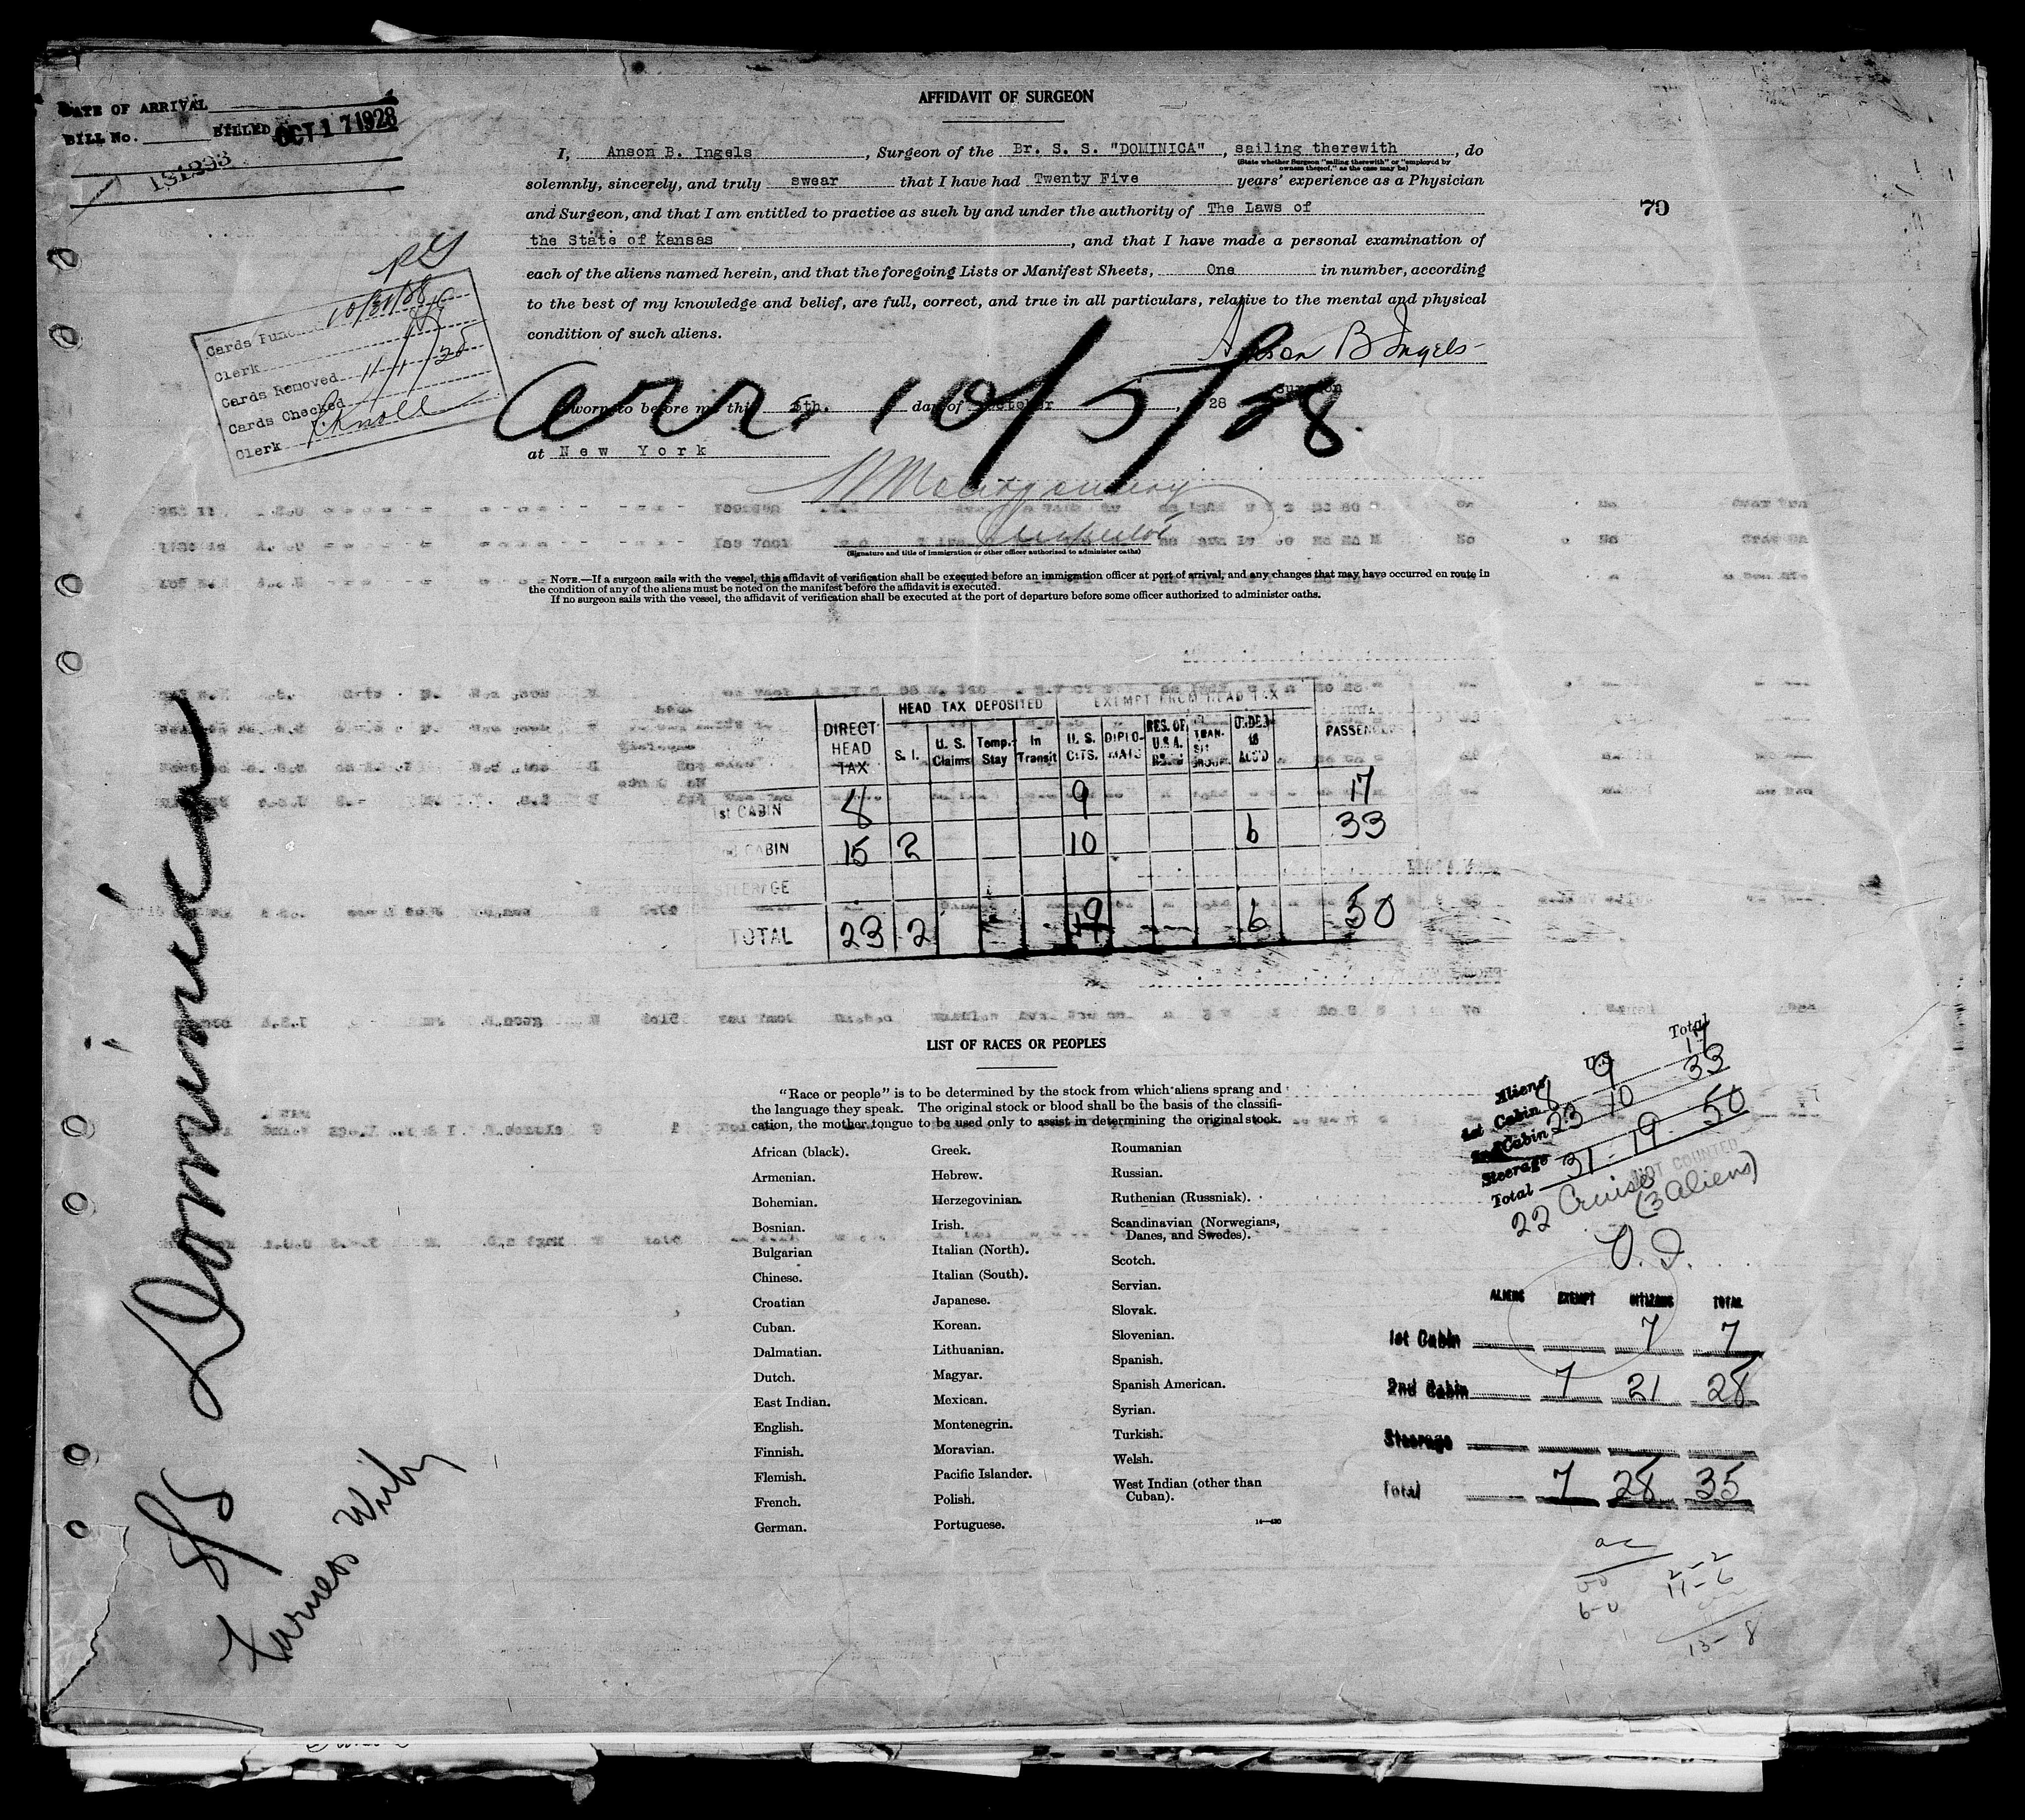 DATE OF ARRIVAL
BILL No. BILLED OCT 17 1928
131293
AFFIDAVIT OF SURGEON
I, Anson B. Ingels, Surgeon of the Br. S. S. "DOMINICA", sailing therewith, do
(State whether Surgeon "sailing therewith" or "employed by
owners thereof," as the case may be)
solemnly, sincerely, and truly swear that I have had Twenty Five years' experience as a Physician
and Surgeon, and that I am entitled to practice as such by and under the authority of The Laws of
the State of Kansas, and that I have made a personal examination of
each of the aliens named herein, and that the foregoing Lists or Manifest Sheets, One in number, according
to the best of my knowledge and belief, are full, correct, and true in all particulars, relative to the mental and physical
condition of such aliens.
Anson B Ingels
Surgeon
70
Cards Punc 10/31/28
Clerk
Cards Removed 11/1/28
Cards Checked
Clerk Knoll
Sworn to before me this 5th. day of October, 28
arr. 10/5/28.
at New York
Montgomery
Inspector
(Signature and title of immigration or other officer authorized to administer oaths)
NOTE.—If a surgeon sails with the vessel, this affidavit of verification shall be executed before an immigration officer at port of arrival, and any changes that may have occurred en route in
the condition of any of the aliens must be noted on the manifest before the affidavit is executed.
If no surgeon sails with the vessel, the affidavit of verification shall be executed at the port of departure before some officer authorized to administer oaths.
DIRECT HEAD TAX HEAD TAX DEPOSITED EXEMPT FROM HEAD TAX PASSENGERS
S. I. U. S. Claims Temp. Stay In Transit U. S. CITS. DIPLOMATS RES. OF U.S.A. TRANSIT GROUP UNDER 16 ACC'D
1st CABIN 8 9 17
2nd CABIN 15 2 10 6 33
STEERAGE
TOTAL 23 2 19 6 50
LIST OF RACES OR PEOPLES
"Race or people" is to be determined by the stock from which aliens sprang and
the language they speak. The original stock or blood shall be the basis of the classifi-
cation, the mother tongue to be used only to assist in determining the original stock.
African (black).
Armenian.
Bohemian.
Bosnian.
Bulgarian
Chinese.
Croatian
Cuban.
Dalmatian.
Dutch.
East Indian.
English.
Finnish.
Flemish.
French.
German.
Greek.
Hebrew.
Herzegovinian.
Irish.
Italian (North).
Italian (South).
Japanese.
Korean.
Lithuanian.
Magyar.
Mexican.
Montenegrin.
Moravian.
Pacific Islander.
Polish.
Portuguese.
Roumanian
Russian.
Ruthenian (Russniak).
Scandinavian (Norwegians,
Danes, and Swedes).
Scotch.
Servian.
Slovak.
Slovenian.
Spanish.
Spanish American.
Syrian.
Turkish.
Welsh.
West Indian (other than
Cuban).
Aliens Total
1st Cabin 8 9 17
2nd Cabin 23 10 33
Steerage
Total 31 - 19 50
NOT COUNTED
22 Cruise (3 aliens)
ALIENS EXEMPT CITIZENS TOTAL
1st Cabin 7 7
2nd Cabin 7 21 28
Steerage
Total 7 28 35
2-2
11-6
6-0
13-8
S/S Dominica
Furness Withy